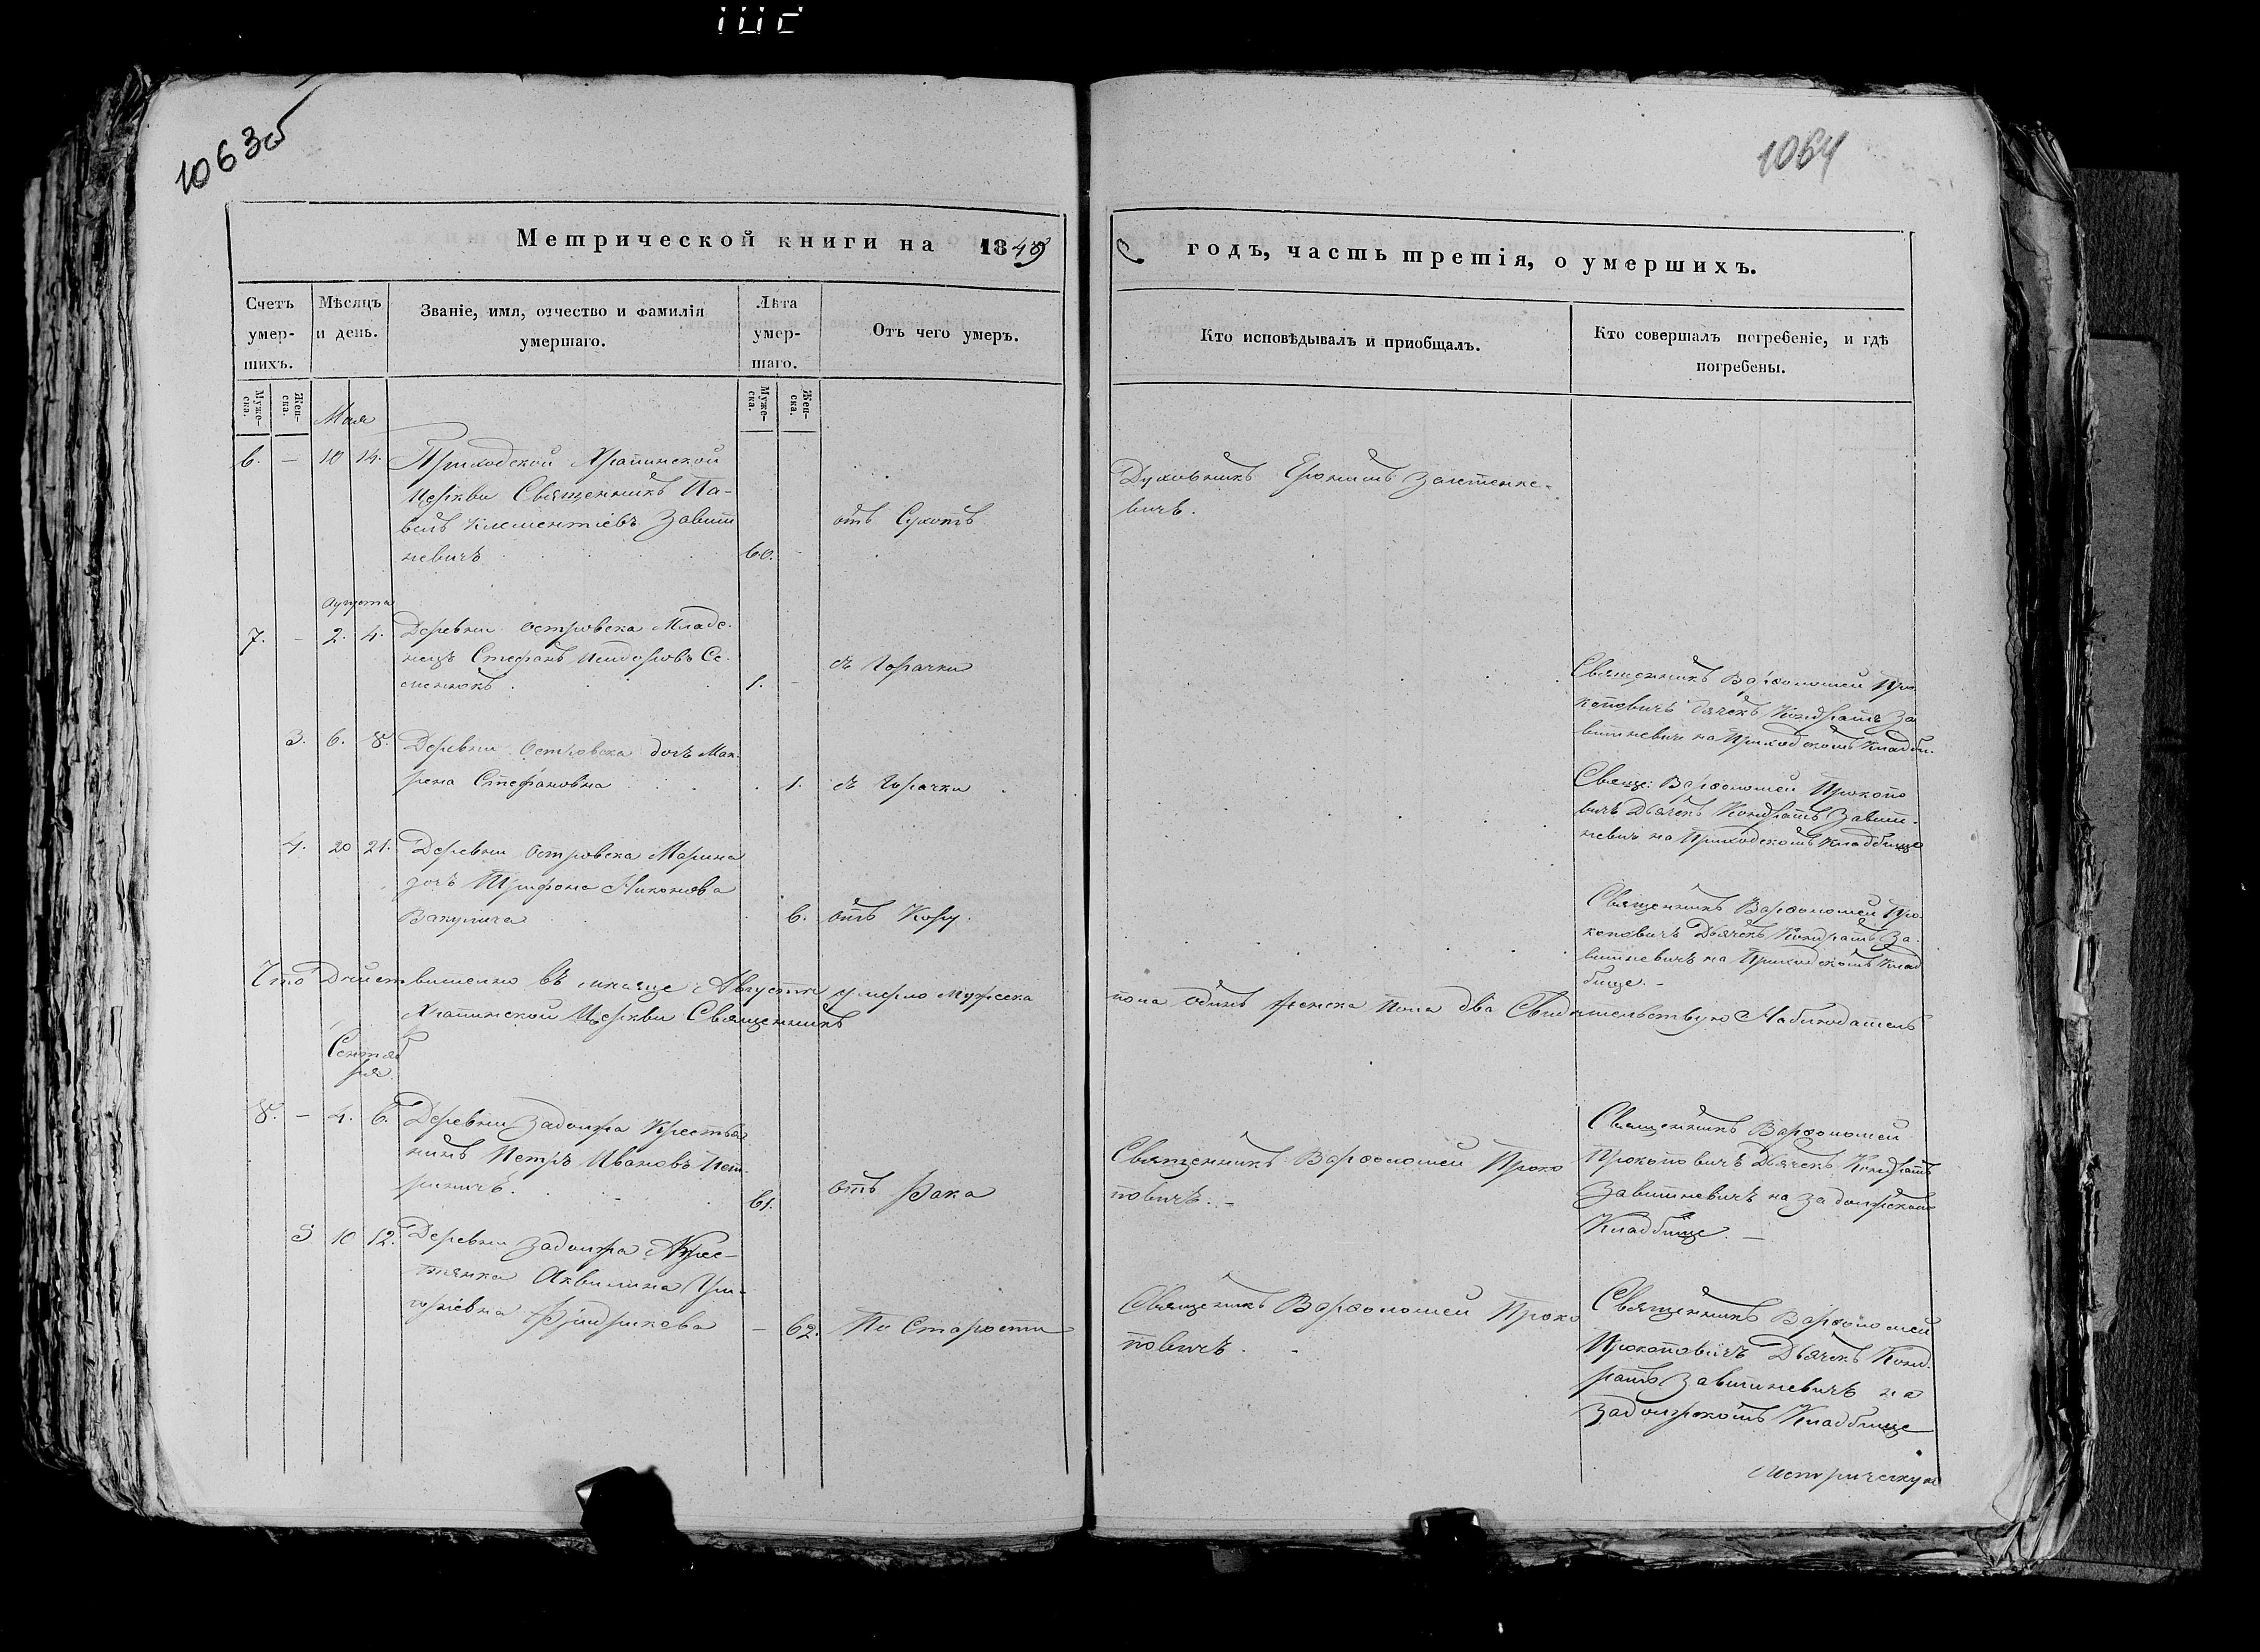 1063об
1064
Метрической книги на 1848
годъ, часть третія, о умершихъ.
Счетъ умер-шихъ.
Мѣсяцъ и день.
Званіе, имя, отчество и фамилія умершаго.
Лѣта умер-шаго.
Отъ чего умеръ.
Кто исповѣдывалъ и приобщалъ.
Кто совершалъ погребеніе, и гдѣ погребены.
Муже-ска.
Жен-ска.
Муже-ска.
Жен-ска.
Мая
6. – 10 14. Приходской Храпинской
Церкви Священникъ Па-
велъ Климентіевъ Завит
невичъ 60.
отъ Сухотъ
Духовникъ
вичъ.
Августа
7. – 2. 4. Деревни Островска Младе-
нецъ Стефанъ Исидоровъ Се-
менюкъ 1. –
съ Горячки
Священникъ Варфоломей Про
коповичъ Дячекъ Кондратъ За
витневичъ на Приходскомъ Кладби.
3. 6. 8. Деревни Островска дочь Мак
рена Стефановна 1. съ Горячки
Свяще: Варфоломей Прокопо
вичъ Дьячекъ Кондратъ Завит-
невичъ на Приходскомъ Кладбище
4. 20 21. Деревни Островска Марина
дочь Трифона Никонова
Вакулича 6. отъ Кору.
Священникъ Варфоломей Про
коповичъ Дьячекъ Кондратъ За-
витневичъ на Приходскомъ Клад
бище. –
Что Дѣйствительно въ мѣсяце Августѣ умерло Мужеска
пола одинъ Женска пола два Свидѣтельствую Наблюдатель
Храпинской Церкви Священникъ
Сентяб
ря
8. – 4. 6. Деревни Задолжа Крестья
нинъ Петръ Ивановъ
61. отъ Рака
Священникъ Варфоломей Проко
повичъ. –
Священникъ Варфоломей
Прокоповичъ Дьячекъ Кондратъ
Завитневичъ на Задолжском
Кладбище. –
5 10 12. Деревни Задолжа Крес-
тянка Аквилина Гри-
горіевна
– 62. По Старости
Священикъ Варфоломей Проко
повичъ. –
Священникъ Варфоломей
Прокоповичъ Дьячекъ Конд-
ратъ Завитневичъ на
Задолжскомъ Кладбище
Метрическую